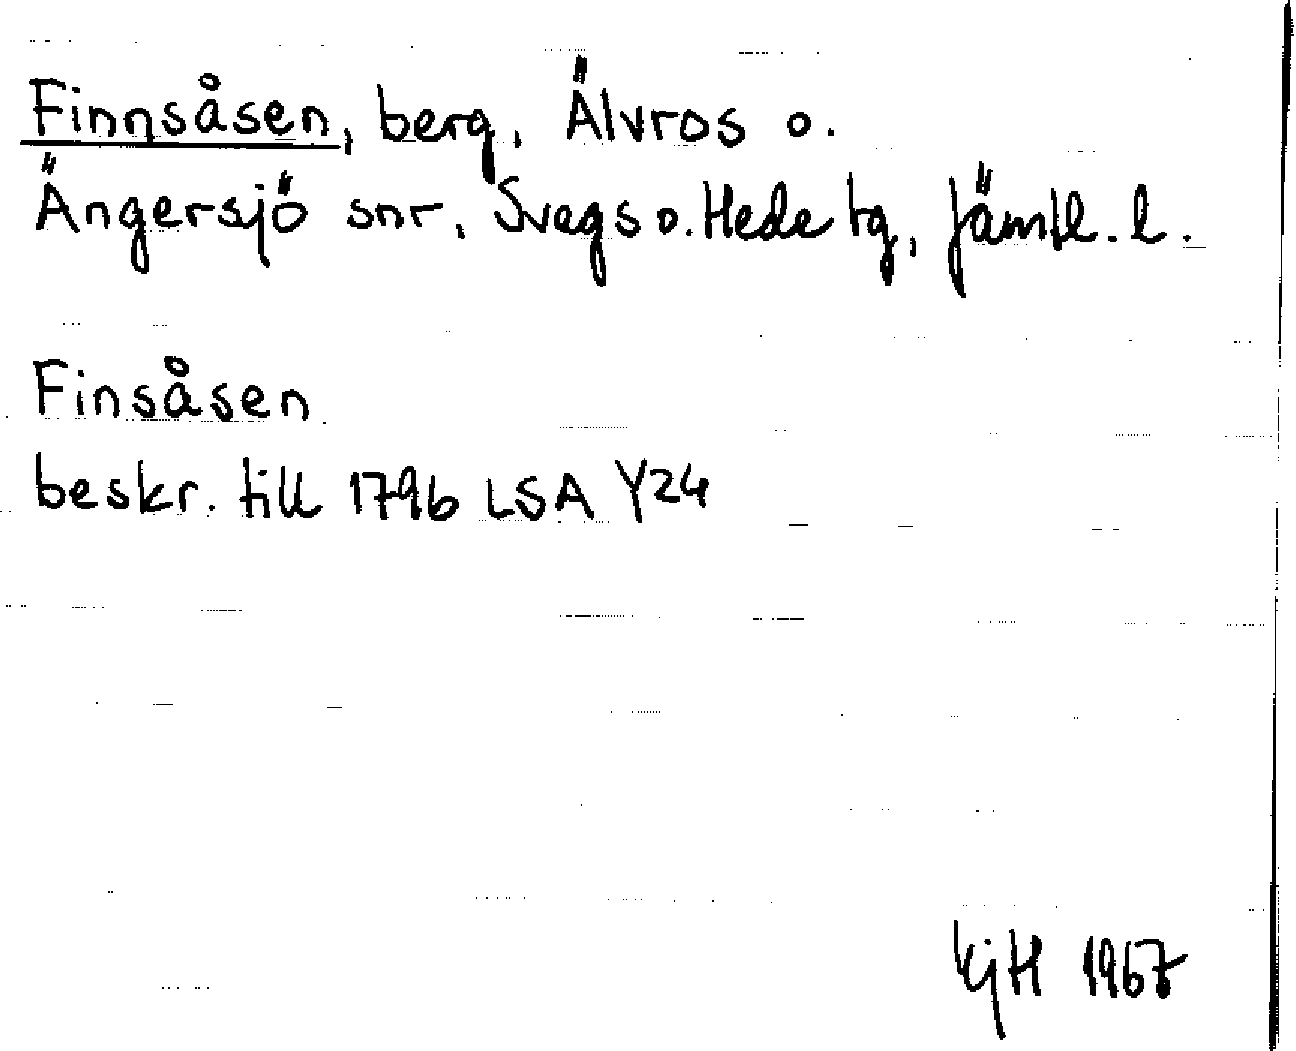 Finnsåsen, berg, Älvros o.
Ängersjö snr, Svegs o. Hede tg, Jämtl. l.
Finsåsen
beskr. till 1796 LSA Y24
KjH 1967